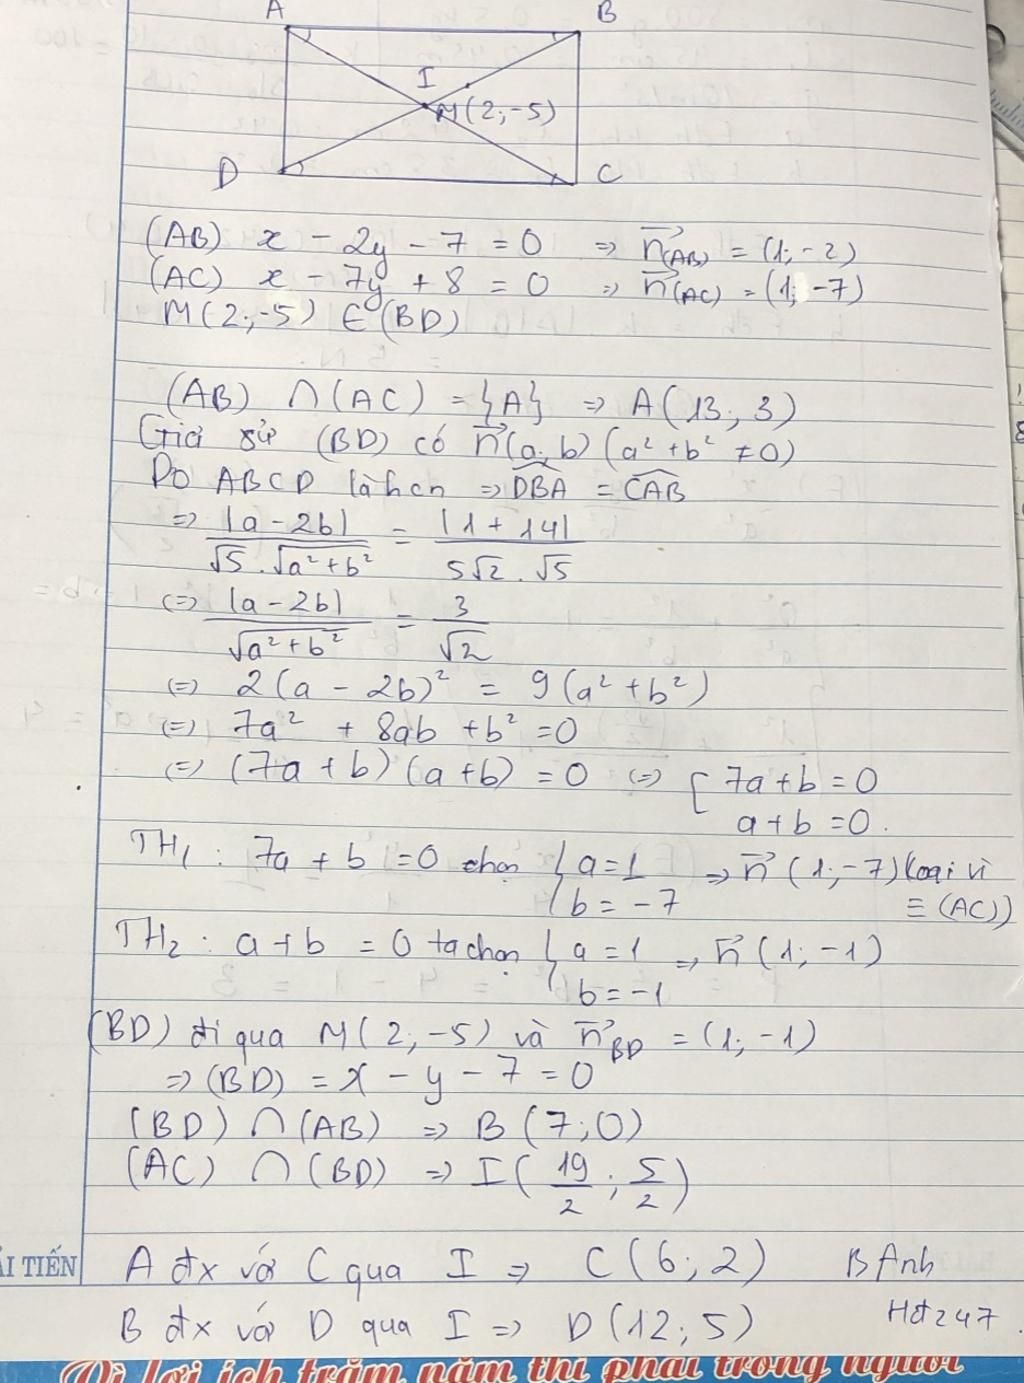 A B
I
M(2;-5)
D C
(AB) x - 2y - 7 = 0 => n⃗(AB) = (1; -2)
(AC) x - 7y + 8 = 0 => n⃗(AC) = (1; -7)
M(2;-5) ∈ (BD)
(AB) ∩ (AC) = {A} => A(13; 3)
Giả sử (BD) có n⃗(a;b) (a² + b² ≠ 0)
Do ABCD là hcn => \widehat{DBA} = \widehat{CAB}
=> |a - 2b| / (√5 . √(a² + b²)) = |1 + 14| / (5√2 . √5)
<=> |a - 2b| / √(a² + b²) = 3 / √2
<=> 2(a - 2b)² = 9(a² + b²)
<=> 7a² + 8ab + b² = 0
<=> (7a + b)(a + b) = 0 <=> [ 7a + b = 0
a + b = 0.
TH1 : 7a + b = 0 chọn { a = 1 => n⃗ (1; -7) (loại vì
b = -7 ≡ (AC))
TH2 : a + b = 0 ta chọn { a = 1 => n⃗ (1; -1)
b = -1
(BD) đi qua M(2; -5) và n⃗BD = (1; -1)
=> (BD) = x - y - 7 = 0
(BD) ∩ (AB) => B(7; 0)
(AC) ∩ (BD) => I(19/2 ; 5/2)
ẢI TIẾN A đx với C qua I => C(6; 2) B Anh
B đx với D qua I => D(12; 5) Hđ247
Vì lợi ích trăm năm thì phải trồng người